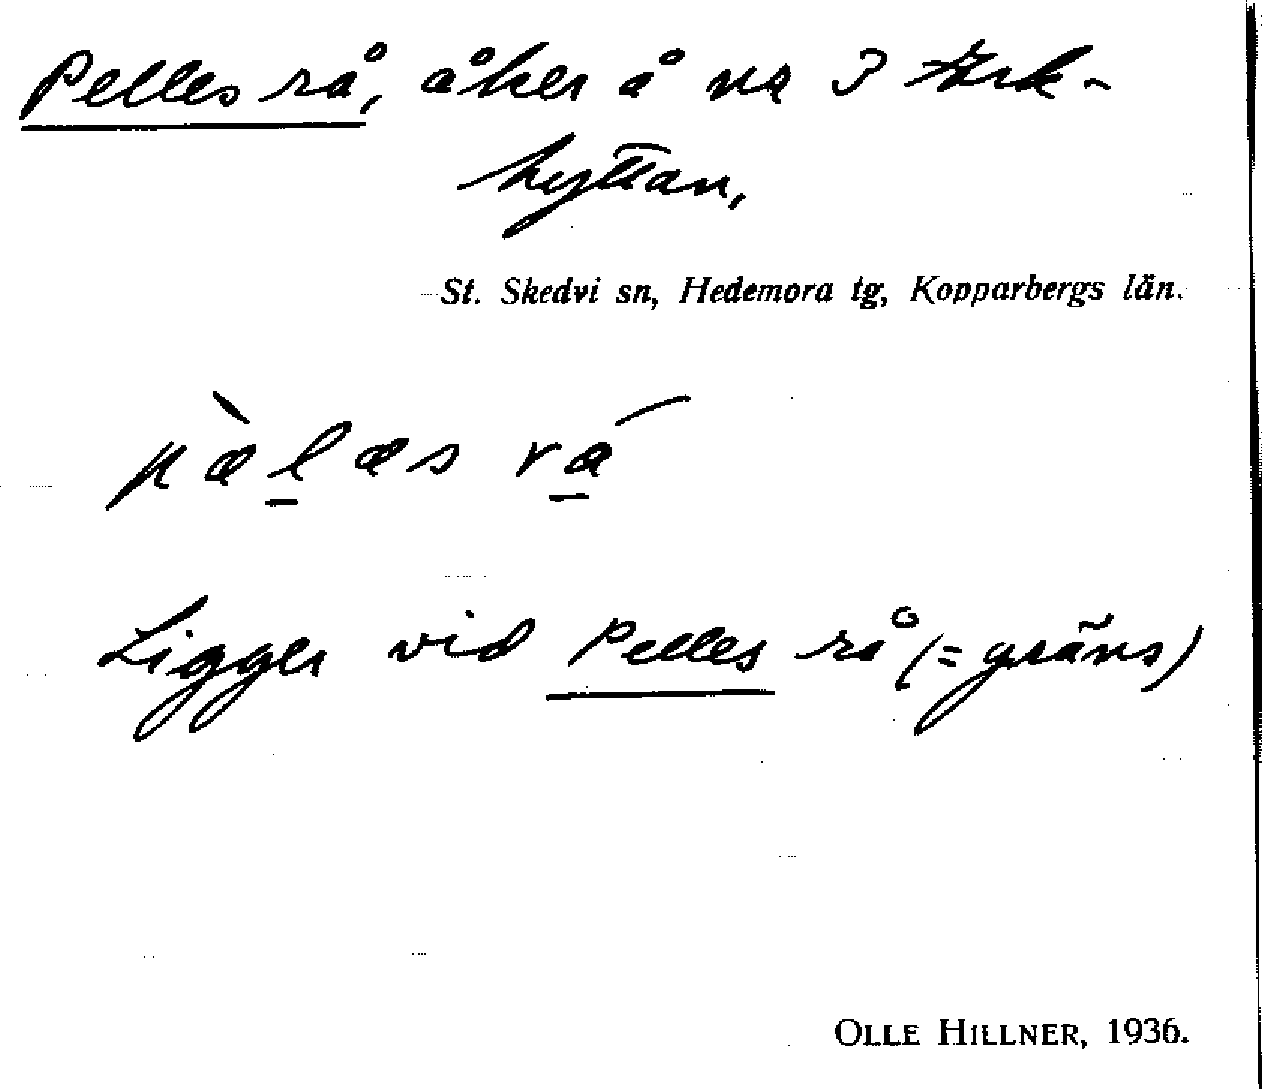 Pelles rå, åker å na 3 Kerk-
hyttan,
St. Skedvi sn, Hedemora tg, Kopparbergs län.
pæ̀l̠æs rá̠
Ligger vid Pelles rå (= gräns)
OLLE HILLNER, 1936.